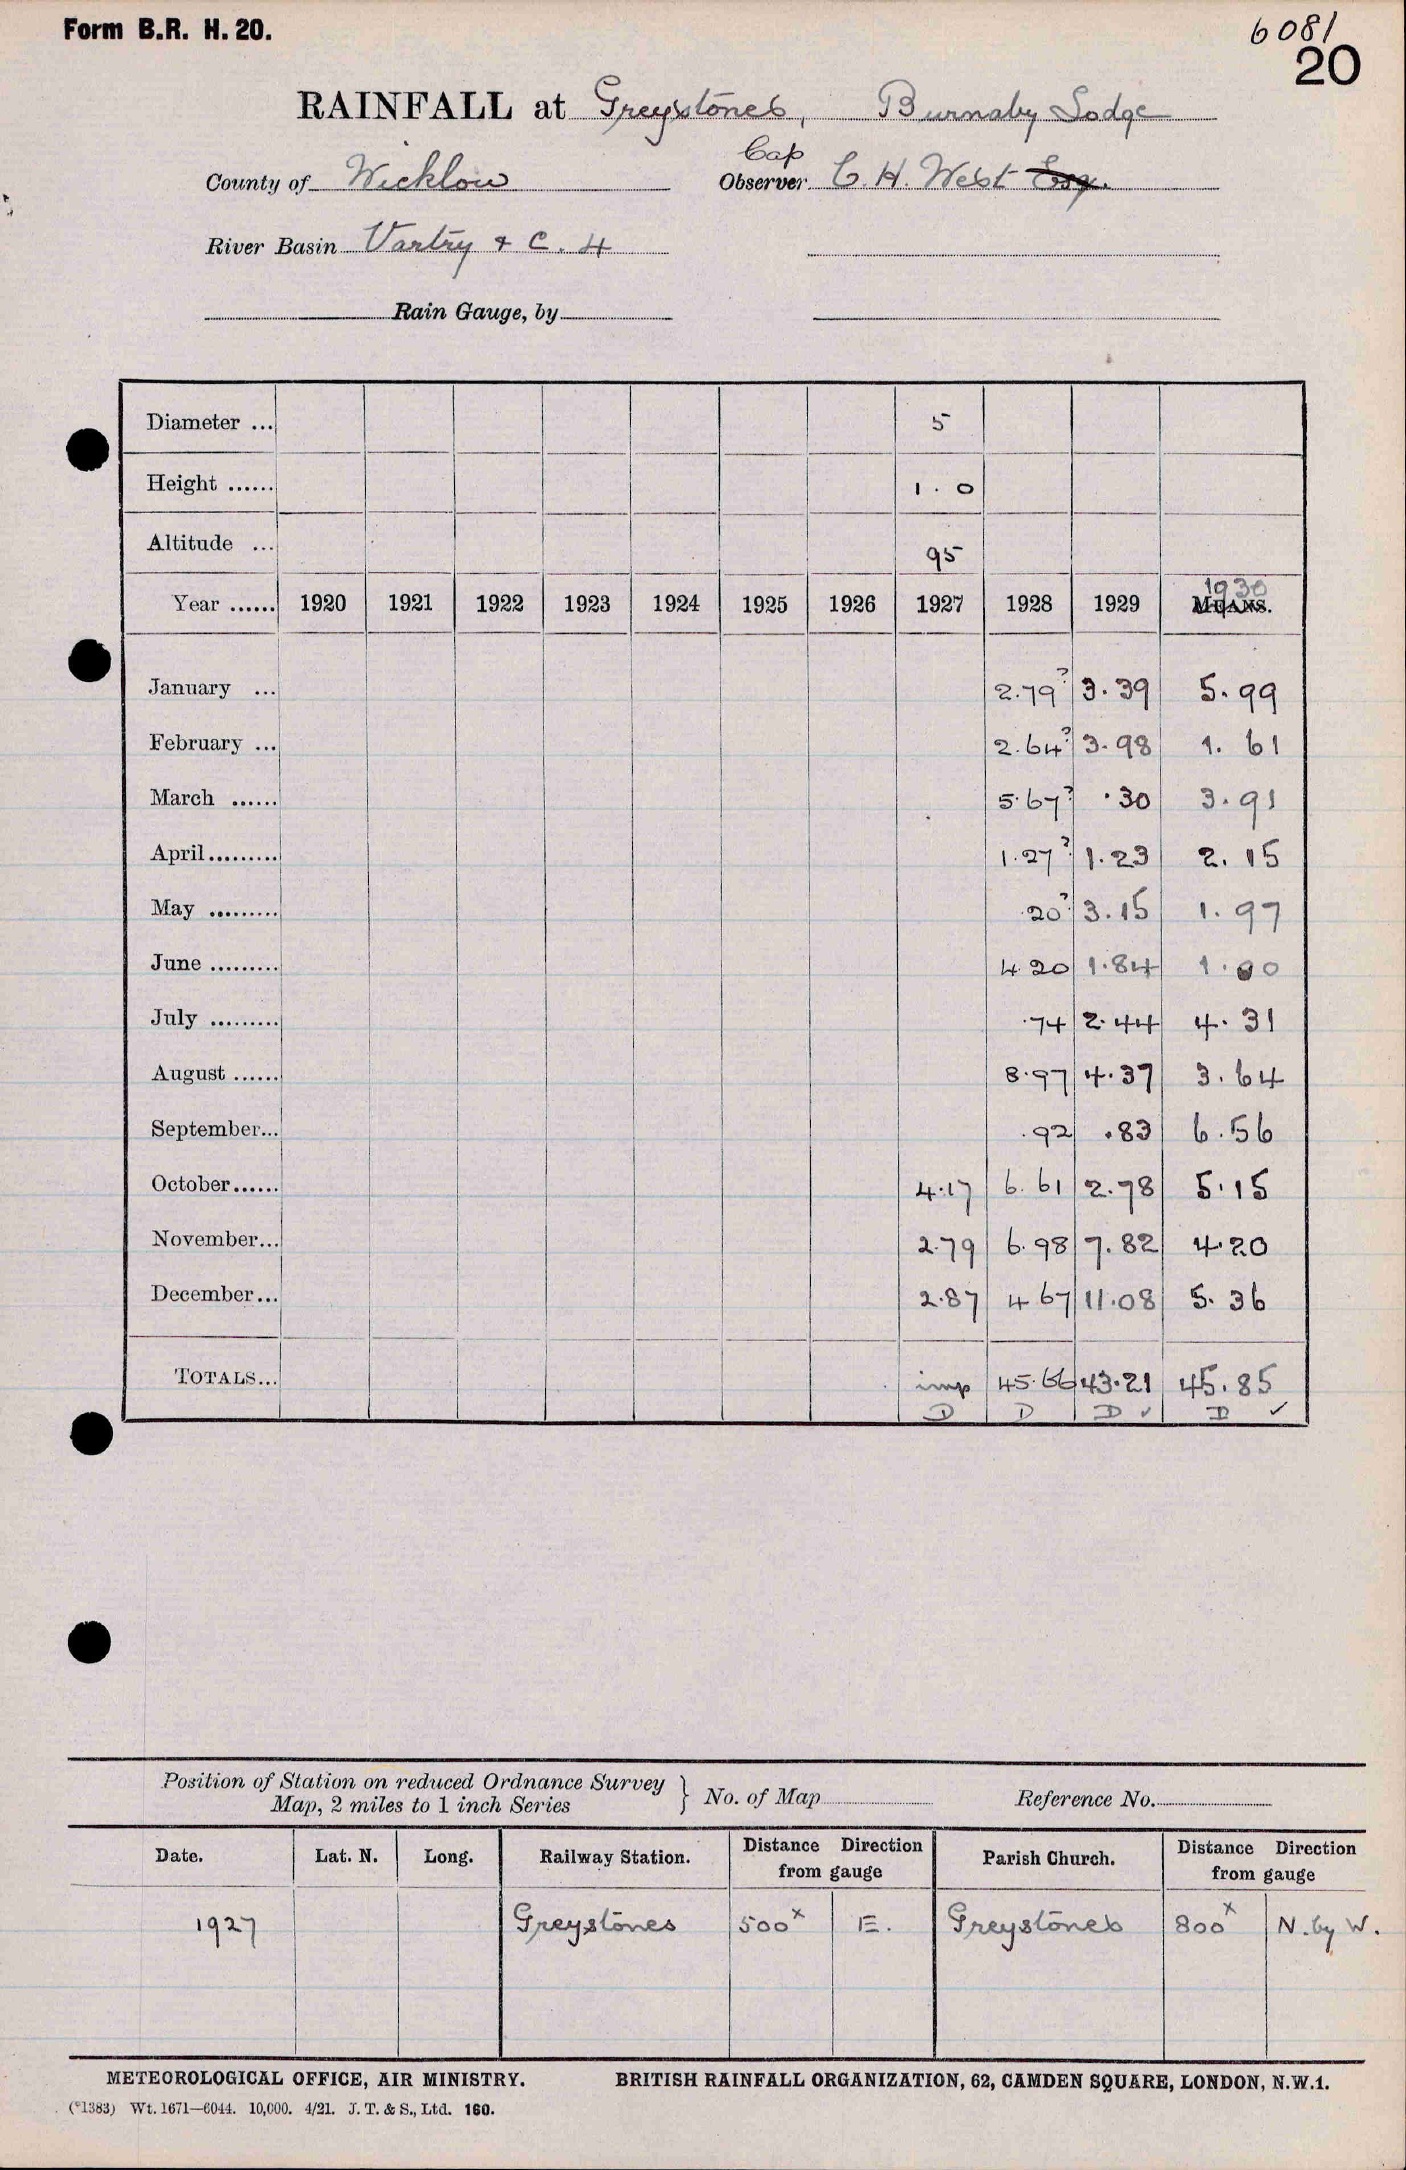 Form B.R. H. 20.
6081
20
RAINFALL at Greystones, Burnaby Lodge
Cap
County of Wicklow Observer C. H. West Esq.
River Basin Vartry & C. 4
Rain Gauge, by
Diameter ... 5
Height ...... 1.0
Altitude ... 95
1930
Year ...... 1920 1921 1922 1923 1924 1925 1926 1927 1928 1929 MEANS.
January ... 2.79? 3.39 5.99
February ... 2.64? 3.98 1.61
March ...... 5.67? .30 3.91
April......... 1.27? 1.23 2.15
May ......... .20? 3.15 1.97
June ......... 4.20 1.84 1.00
July ......... .74 2.44 4.31
August ...... 8.97 4.37 3.64
September... .92 .83 6.56
October...... 4.17 6.61 2.78 5.15
November... 2.79 6.98 7.82 4.20
December... 2.87 4.67 11.08 5.36
TOTALS... imp 45.66 43.21 45.85
D D D ✓ D ✓
Position of Station on reduced Ordnance Survey
Map, 2 miles to 1 inch Series } No. of Map Reference No.
Date. Lat. N. Long. Railway Station. Distance Direction from gauge Parish Church. Distance Direction from gauge
1927 Greystones 500x E. Greystones 800x N. by W.
METEOROLOGICAL OFFICE, AIR MINISTRY. BRITISH RAINFALL ORGANIZATION, 62, CAMDEN SQUARE, LONDON, N.W.1.
(*1383) Wt. 1671—6044. 10,000. 4/21. J. T. & S., Ltd. 160.